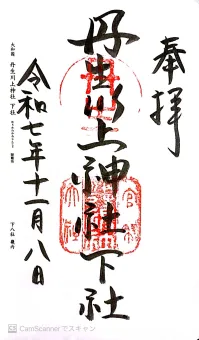 奉拝
丹生川上神社下社
令和七年十一月八日
丹生川上神社 下社
CamScannerでスキャン